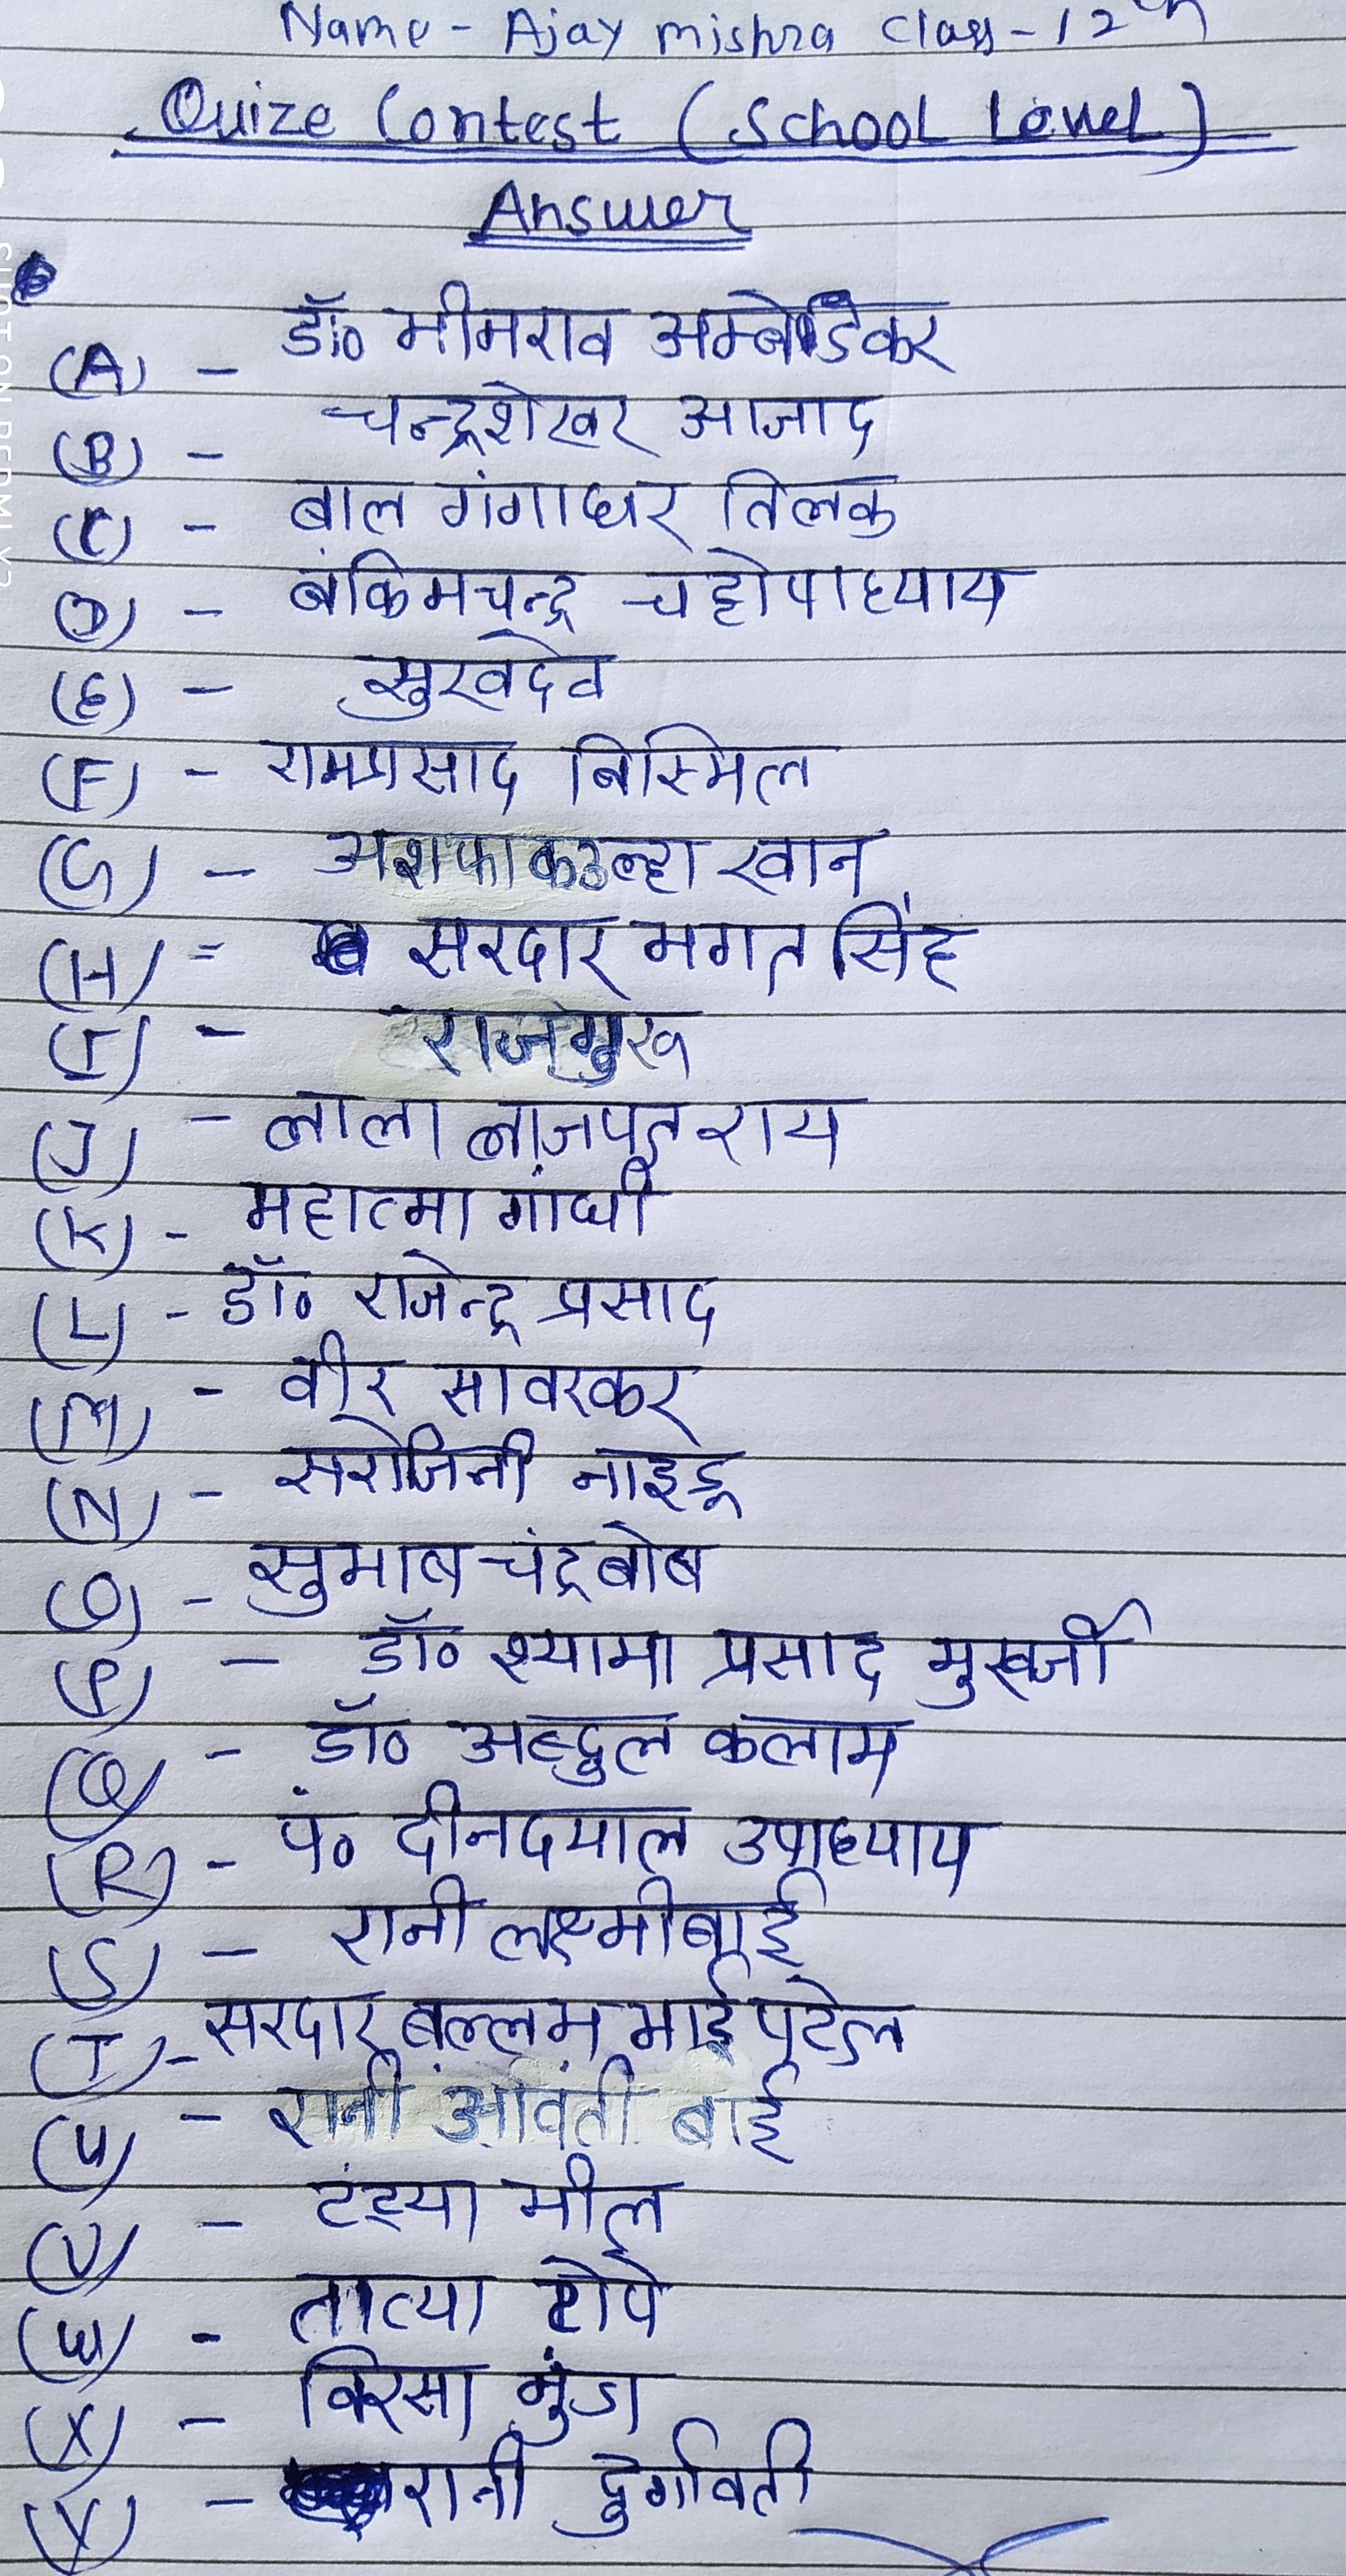 Name - Ajay mishra class - 12th
Quize Contest (School Level)
Answer
(A) - डॉ० भीमराव अम्बेडिकर
(B) - चन्द्रशेखर आजाद
(C) - बाल गंगाधर तिलक
(D) - बंकिमचन्द्र चट्टोपाध्याय
(E) - सुखदेव
(F) - रामप्रसाद बिस्मिल
(G) - अशफाकउल्हा खान
(H) = सरदार भगत सिंह
(I) - राजगुरू
(J) - लाला लाजपत राय
(K) - महात्मा गांधी
(L) - डॉ० राजेन्द्र प्रसाद
(M) - वीर सावरकर
(N) - सरोजिनी नाइडू
(O) - सुभाष चंद्र बोष
(P) - डॉ० श्यामा प्रसाद मुखर्जी
(Q) - डॉ० अब्दुल कलाम
(R) - पं० दीनदयाल उपाध्याय
(S) - रानी लक्ष्मीबाई
(T) - सरदार बल्लभ भाई पटेल
(U) - रानी अंवंती बाई
(V) - टंड्या भील
(W) - तात्या टोपे
(X) - बिरसा मुंडा
(Y) - रानी दुर्गावती
SHOT ON REDMI Y3